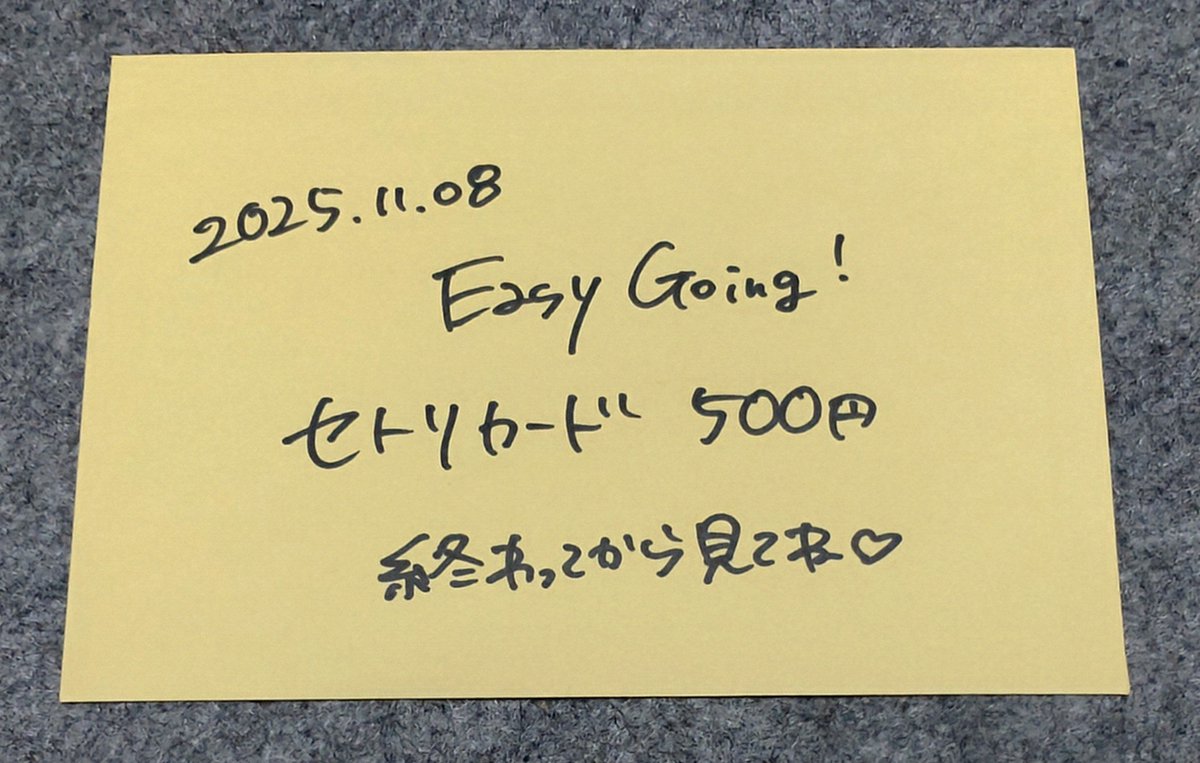 2025.11.08
Easy Going!
セトリカード 500円
終わってから見てね♡